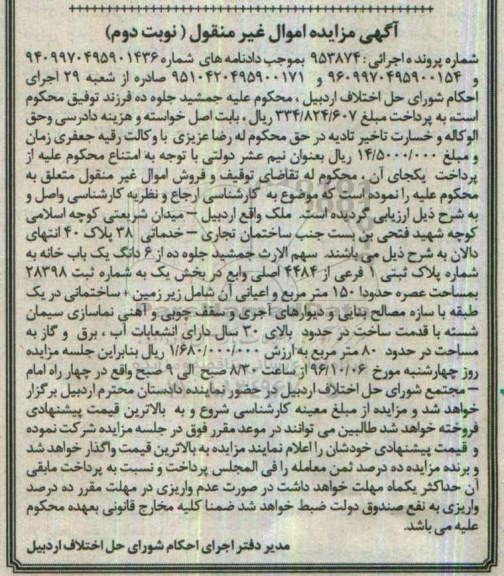 آگهی مزایده اموال غیر منقول ( نوبت دوم)
شماره پرونده اجرائی: ۹۵۳۸۷۴ بموجب دادنامه های شماره ۹۴۰۹۹۷۰۴۹۵۹۰۱۴۳۶
و ۹۶۰۹۹۷۰۴۹۵۹۰۰۱۵۴ و ۹۵۱۰۴۲۰۴۹۵۹۰۰۱۷۱ صادره از شعبه ۲۹ اجرای
احکام شورای حل اختلاف اردبیل ، محکوم علیه جمشید جلوه ده فرزند توفیق محکوم
است، به پرداخت مبلغ ۳۳۴/۸۲۴/۶۰۷ ریال ، بابت اصل خواسته و هزینه دادرسی وحق
الوکاله و خسارت تاخیر تادیه در حق محکوم له رضا عزیزی با وکالت رقیه جعفری زمان
و مبلغ ۱۴/۵۰۰۰/۰۰۰ ریال بعنوان نیم عشر دولتی با توجه به امتناع محکوم علیه از
پرداخت یکجای آن ، محکوم له تقاضای توقیف و فروش اموال غیر منقول متعلق به
محکوم علیه را نموده است. موضوع به کارشناسی ارجاع و نظریه کارشناسی واصل و
به شرح ذیل ارزیابی گردیده است. ملک واقع اردبیل – میدان شریعتی کوچه اسلامی
کوچه شهید فتحی بن بست جنب ساختمان تجاری – خدماتی ۳۸ پلاک ۴۰ انتهای
دالان به شرح ذیل می باشند. سهم الارث جمشید جلوه ده از ۶ دانگ یک باب خانه به
شماره پلاک ثبتی ۱ فرعی از ۴۴۸۴ اصلی واقع در بخش یک به شماره ثبت ۲۸۳۹۸
بمساحت عرصه حدودا ۱۵۰ متر مربع و اعیانی آن شامل زیر زمین + ساختمانی در یک
طبقه با سازه مصالح بنایی و دیوارهای آجری و سقف چوبی و آهنی نماسازی سیمان
شسته با قدمت ساخت در حدود بالای ۳۰ سال دارای انشعابات آب ، برق و گاز به
مساحت در حدود ۸۰ متر مربع به ارزش ۱/۶۸۰/۰۰۰/۰۰۰ ریال بنابراین جلسه مزایده
روز چهارشنبه مورخ ۹۶/۱۰/۰۶ از ساعت ۸/۳۰ صبح الی ۹ صبح واقع در چهار راه امام
– مجتمع شورای حل اختلاف اردبیل در حضور نماینده دادستان محترم اردبیل برگزار
خواهد شد و مزایده از مبلغ معینه کارشناسی شروع و به بالاترین قیمت پیشنهادی
فروخته خواهد شد طالبین می توانند در موعد مقرر فوق در جلسه مزایده شرکت نموده
و قیمت پیشنهادی خودشان را اعلام نمایند مزایده به بالاترین قیمت واگذار خواهد شد
و برنده مزایده ده درصد ثمن معامله را فی المجلس پرداخت و نسبت به پرداخت مابقی
آن حداکثر یکماه مهلت خواهد داشت در صورت عدم واریزی در مهلت مقرر ده درصد
واریزی به نفع صندوق دولت ضبط خواهد شد ضمنا کلیه مخارج قانونی بعهده محکوم
علیه می باشد.
مدیر دفتر اجرای احکام شورای حل اختلاف اردبیل